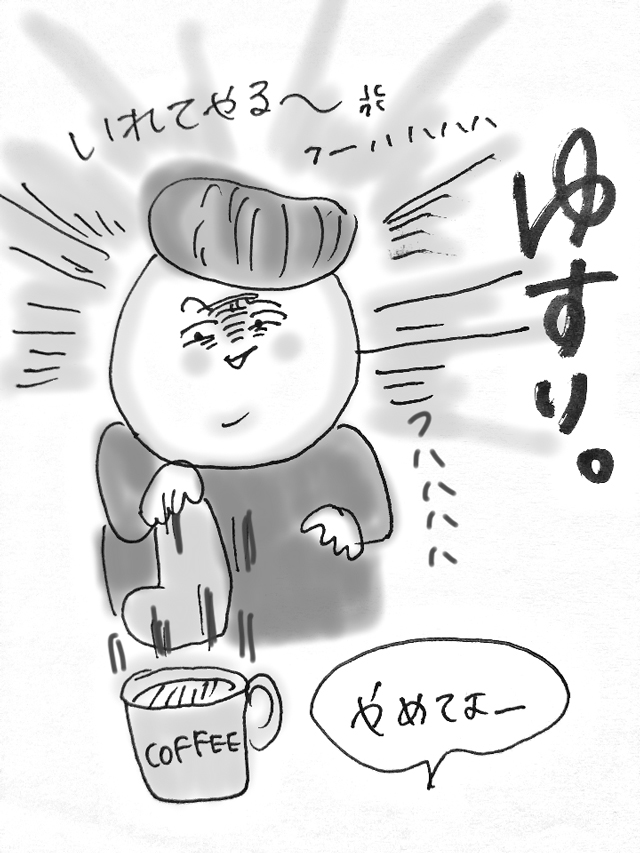 いれてやる〜
フーハハハハ
ゆすり。
フハハハハ
COFFEE
やめてよー